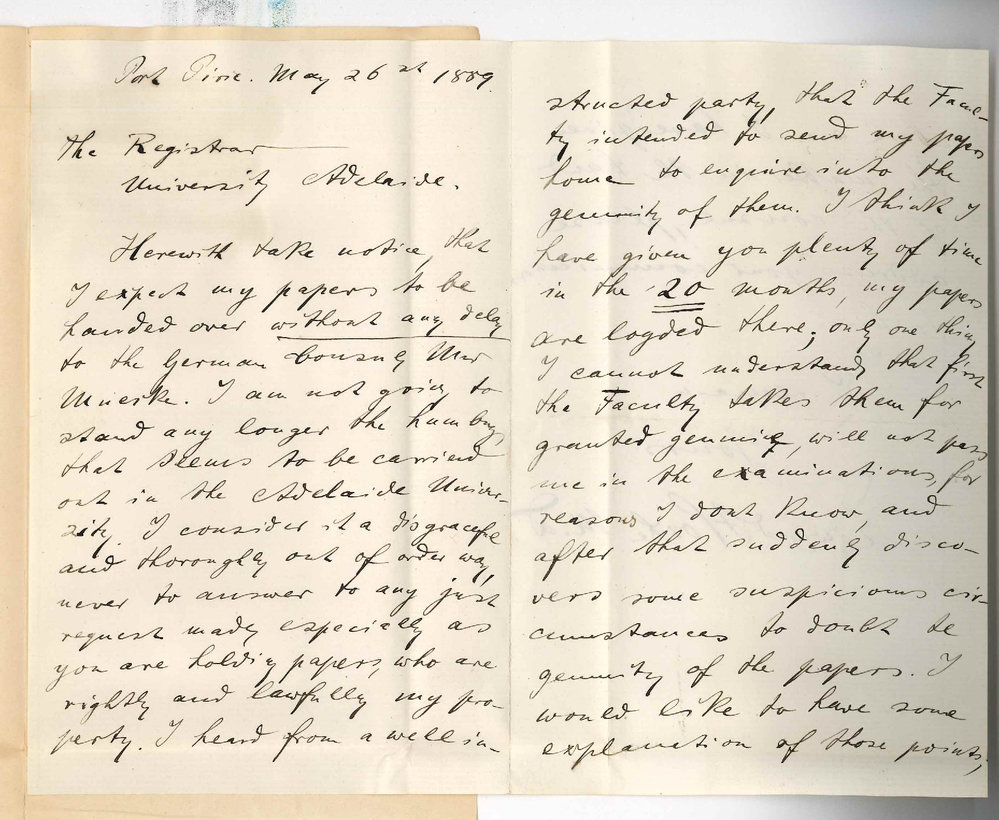 Port Pirie. May 26st 1889.
the Registrar
University Adelaide.
Herewith take notice, that
I expect my papers to be
handed over without any delay
to the German Consul, Mr
Muecke. I am not going to
stand any longer the humbug
that seems to be carried
out in the Adelaide Univer-
sity. I consider it a disgraceful
and thoroughly out of order way,
never to answer to any just
request made, especially as
you are holding papers, who are
rightly and lawfully my pro-
perty. I heard from a well in-
structed party, that the Facul-
ty intended to send my papers
home to enquire into the
genuity of them. I think I
have given you plenty of time
in the 20 months, my papers
are logded there; only one thing
I cannot understand, that first
the Faculty takes them for
granted genuine, will not pass
me in the examinations, for
reasons I dont know, and
after that suddenly disco-
vers some suspicious cir-
cumstances to doubt te
genuity of the papers. I
would like to have some
explanation of those points,